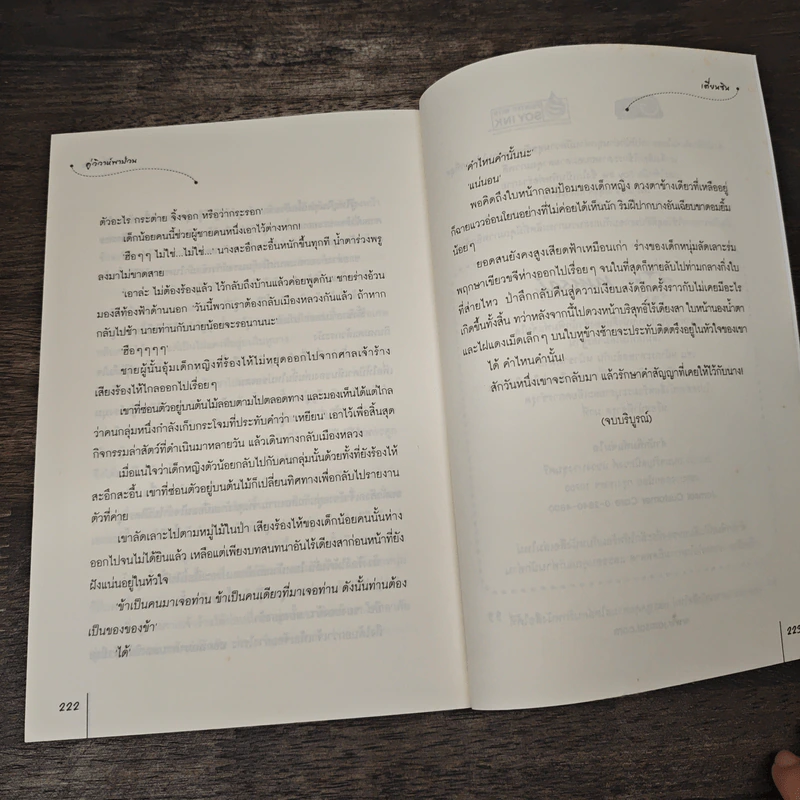 คู่วิวาห์พาป่วน
ตัวอะไร กระต่าย จิ้งจอก หรือว่ากระรอก'
เด็กน้อยคนนี้ช่วยผู้ชายคนหนึ่งเอาไว้ต่างหาก!
'ฮือๆๆ ไม่ใช่...ไม่ใช่...' นางสะอึกสะอื้นหนักขึ้นทุกที น้ำตาร่วงพรู
ลงมาไม่ขาดสาย
'เอาล่ะ ไม่ต้องร้องแล้ว ไว้กลับถึงบ้านแล้วค่อยพูดกัน' ชายร่างอ้วน
มองสีท้องฟ้าด้านนอก 'วันนี้พวกเราต้องกลับเมืองหลวงกันแล้ว ถ้าหาก
กลับไปช้า นายท่านกับนายน้อยจะรอนานนะ'
'ฮือๆๆๆๆ'
ชายผู้นั้นอุ้มเด็กหญิงที่ร้องไห้ไม่หยุดออกไปจากศาลเจ้าร้าง
เสียงร้องไห้ไกลออกไปเรื่อยๆ
เขาที่ซ่อนตัวอยู่บนต้นไม้ลอบตามไปตลอดทาง และมองเห็นได้แต่ไกล
ว่าคนกลุ่มหนึ่งกำลังเก็บกระโจมที่ประทับคำว่า 'เหยียน' เอาไว้เพื่อสิ้นสุด
กิจกรรมล่าสัตว์ที่ดำเนินมาหลายวัน แล้วเดินทางกลับเมืองหลวง
เมื่อแน่ใจว่าเด็กหญิงตัวน้อยกลับไปกับคนกลุ่มนั้นด้วยทั้งที่ยังร้องไห้
สะอึกสะอื้น เขาที่ซ่อนตัวอยู่บนต้นไม้ก็เปลี่ยนทิศทางเพื่อกลับไปรายงาน
ตัวที่ค่าย
เขาลัดเลาะไปตามหมู่ไม้ในป่า เสียงร้องไห้ของเด็กน้อยคนนั้นห่าง
ออกไปจนไม่ได้ยินแล้ว เหลือแต่เพียงบทสนทนาอันไร้เดียงสาก่อนหน้าที่ยัง
ฝังแน่นอยู่ในหัวใจ
'ข้าเป็นคนมาเจอท่าน ข้าเป็นคนเดียวที่มาเจอท่าน ดังนั้นท่านต้อง
เป็นของของข้า'
'ได้'
222
เตี่ยนซิน
'คำไหนคำนั้นนะ'
'แน่นอน'
พอคิดถึงใบหน้ากลมป้อมของเด็กหญิง ดวงตาข้างเดียวที่เหลืออยู่
ก็ฉายแววอ่อนโยนอย่างที่ไม่ค่อยได้เห็นนัก ริมฝีปากบางอันเฉียบขาดอมยิ้ม
น้อยๆ
ยอดสนยังคงสูงเสียดฟ้าเหมือนเก่า ร่างของเด็กหนุ่มลัดเลาะร่ม
พฤกษาเขียวขจีห่างออกไปเรื่อยๆ จนในที่สุดก็หายลับไปท่ามกลางกิ่งใบ
ที่ส่ายไหว ป่าลึกกลับคืนสู่ความเงียบสงัดอีกครั้งราวกับไม่เคยมีอะไร
เกิดขึ้นทั้งสิ้น ทว่าหลังจากนี้ไปดวงหน้าบริสุทธิ์ไร้เดียงสา ใบหน้านองน้ำตา
และไฝแดงเม็ดเล็กๆ บนใบหูข้างซ้ายจะประทับติดตรึงอยู่ในหัวใจของเขา
ได้ คำไหนคำนั้น!
สักวันหนึ่งเขาจะกลับมา แล้วรักษาคำสัญญาที่เคยให้ไว้กับนาง!
(จบบริบูรณ์)